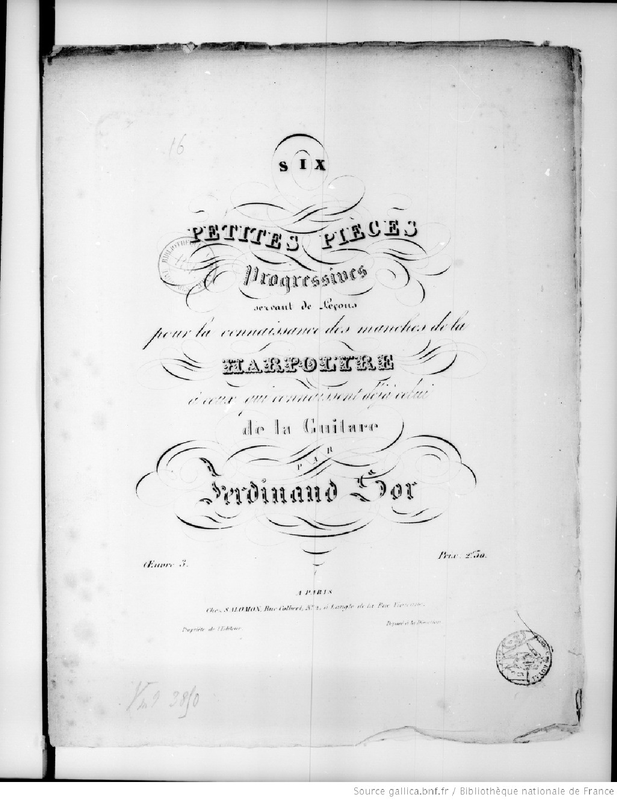 16
SIX
PETITES PIÈCES
Progressives
servant de Leçons
pour la connaissance des manches de la
HARPOLYRE
à ceux qui connaissent déjà celui
de la Guitare
PAR
Ferdinand Sor
Œuvre 3.
Prix: 2f 50.
A PARIS
Chez SALOMON, Rue Colbert, No. 2, à l'angle de la Rue Vivienne.
Propriété de l'Editeur
Déposé à la Direction
Source gallica.bnf.fr / Bibliothèque nationale de France